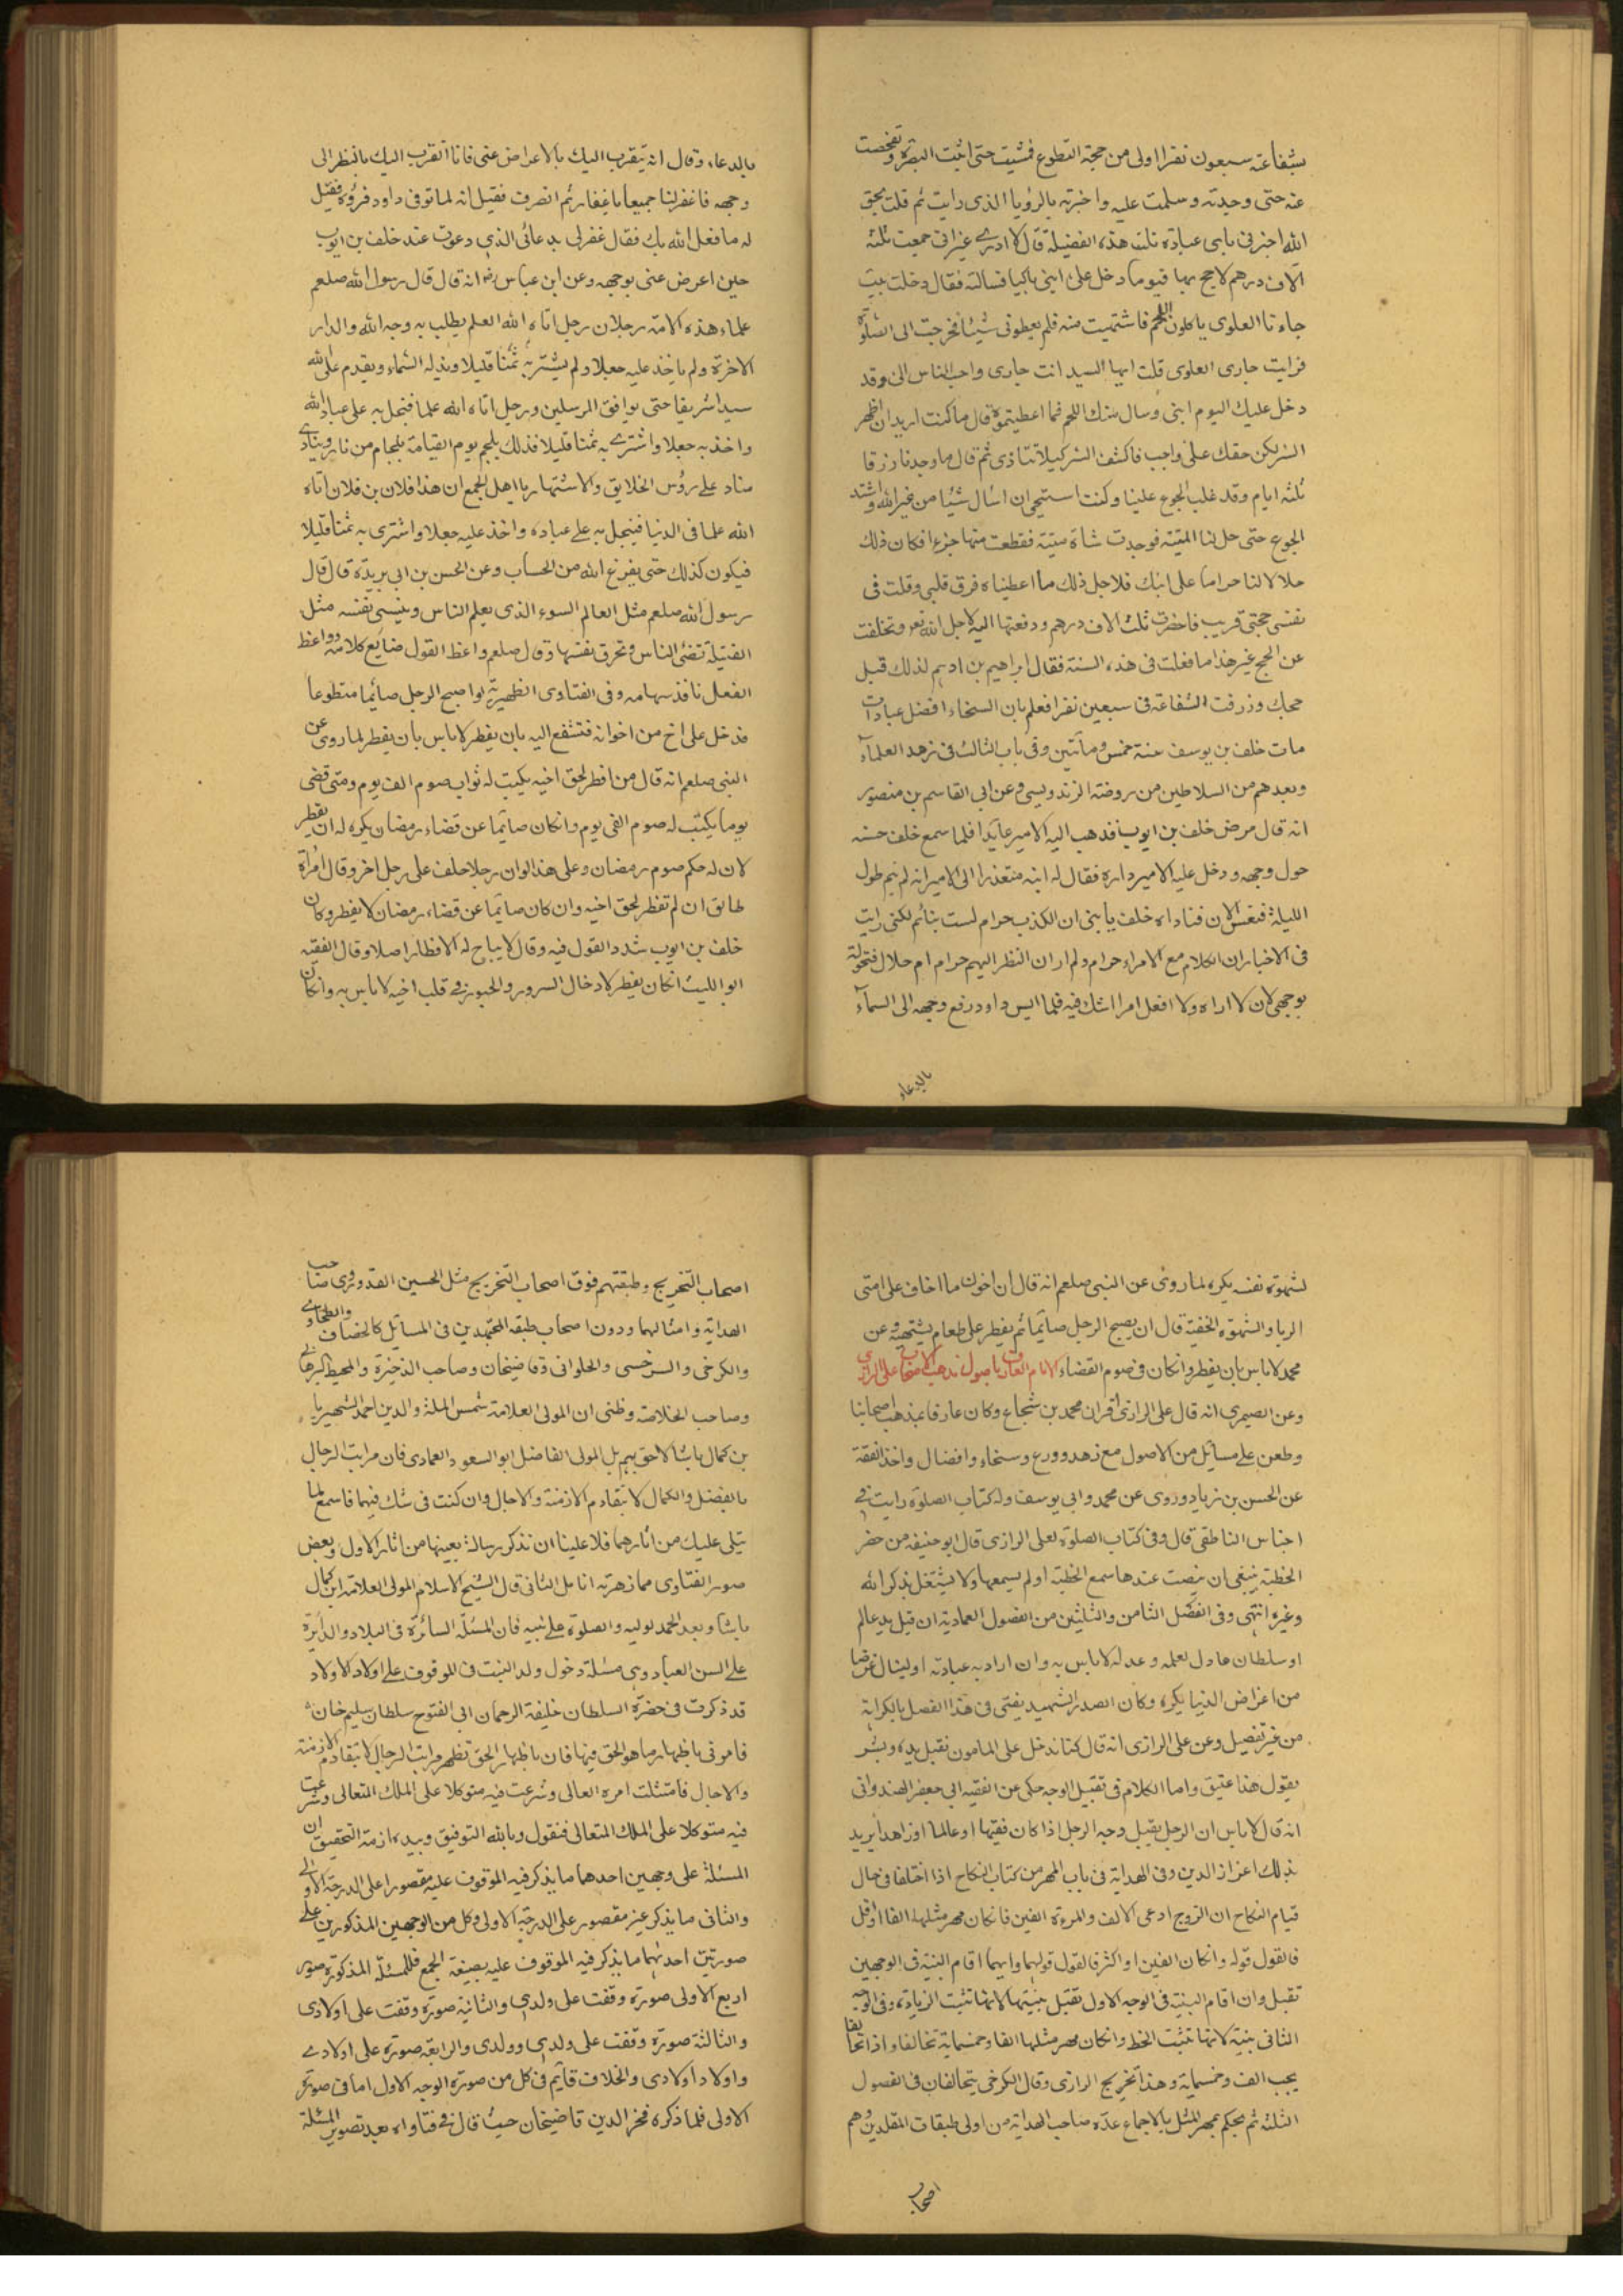 بشفاعته سبعون نفرا اولى من حجة التطوع فمشيت حتى اتيت البصرة وتفحصت
عنه حتى وجدته وسلمت عليه واخبرته بالرؤيا الذى رايت ثم قلت بحق
الله اخبرنى باى عبادة نلت هذه الفضيلة قال لا ادرى غير انى جمعت ثلثة
آلاف درهم لاحج بها فيوما دخل على ابنى باكيا فسالته فقال دخلت بيت
جارنا العلوى ياكلون اللحم فاشتهيت منه فلم يعطونى شيئا فخرجت الى الصلوة
فرايت جارى العلوى قلت ايها السيد انت جارى واحب الناس الى وقد
دخل عليك اليوم ابنى وسال منك اللحم فما اعطيتموه قال ما كنت اريد ان اظهر
السر لكن حقك على واجب فاكشف السر كيلا تتاذى ثم قال ما وجدنا رزقا
ثلثه ايام وقد غلب الجوع علينا وكنت استحيى ان اسال شيئا من غير الله واشتد
الجوع حتى حل لنا الميتة فوجدت شاة ميتة فقطعت منها جزءا فكان ذلك
حلالا لنا حراما على ابنك فلاجل ذلك ما اعطيناه فرق قلبى وقلت فى
نفسى حجتى قريب فاحضرت ثلث الاف درهم ودفعتها اليه لاجل الله تعو وتخلفت
عن الحج غير هذا ما فعلت فى هذه السنة فقال ابراهيم بن ادهم لذلك قبل
حجك وزرقت الشفاعة فى سبعين نفرا فعلم بان السخاء افضل عبادات
مات خلف بن يوسف سنة خمس ومائتين وفى باب الثالث فى زهد العلمآء
وبعدهم من السلاطين من روضة الزندويسى وعن ابى القاسم بن منصور
انه قال مرض خلف بن ايوب فذهب اليه الامير عايدا فلما سمع خلف حسه
حول وجهه ودخل عليه الامير داره فقال له ابنه متعذرا الى الامير انه لم ينم طول
الليلة فنعس الان فناداه خلف يا بنى ان الكذب حرام لست بنائم لكنى رايت
فى الاخبار ان الكلام مع الامراء حرام ولم ار ان النظر اليهم حرام ام حلال فتحولة
بوجهى لان لا اراه ولا افعل امرا اشك فيه فلما ايس داود رفع وجهه الى السمآء
بالدعاء
بالدعاء وقال انه يتقرب اليك بالاعراض عنى فانا اتقرب اليك بالنظر الى
وجهه فاغفر لنا جميعا يا غفار ثم انصرف فقيل انه لما توفى داود فرؤه فقيل
له ما فعل الله بك فقال غفر لى بدعائى الذى دعوت عند خلف بن ايوب
حين اعرض عنى بوجهه وعن ابن عباس رض انه قال قال رسول الله صلعم
علماء هذه الامة رجلان رجل اتاه الله العلم يطلب به وجه الله والدار
الاخرة ولم ياخذ عليه جعلا ولم يشتر به ثمنا قليلا ويقدم على الله
سيدا شريفا حتى يوافق المرسلين ورجل اتاه الله علما فبخل به على عباد الله
واخذ به جعلا واشترى به ثمنا قليلا فذلك يلجم يوم القيامة بلجام من نار وينادى
مناد على رؤس الخلايق والاشتهار يا اهل الجمع ان هذا فلان بن فلان اتاه
الله علما فى الدنيا فبخل به على عباده واخذ عليه جعلا واشترى به ثمنا قليلا
فيكون كذلك حتى يفرغ الله من الحساب وعن الحسن بن ابى بريدة قال قال
رسول الله صلعم مثل العالم السوء الذى يعلم الناس وينسى نفسه مثل
الفتيلة تضئ الناس وتحرق نفسها وقال صلعم واعظ القول ضايع كلامه وواعظ
الفعل نافذ سهامه وفى الفتاوى الظهيرية لو اصبح الرجل صائما متطوعا
فدخل على اخ من اخوانه فتشفع اليه بان يفطر لا باس بان يفطر لما روى عن
النبى صلعم انه قال من افطر لحق اخيه يكتب له ثواب صوم الف يوم ومتى قضى
يوما يكتب له صوم الفى يوم وانكان صائما عن قضاء رمضان يكره له ان يفطر
لان له حكم صوم رمضان وعلى هذا لو ان رجلا حلف على رجل اخر وقال امرأة
طالق ان لم تفطر لحق اخيه وان كان صائما عن قضاء رمضان لا يفطر وكان
خلف بن ايوب شدد القول فيه وقال لا يباح له الافطار اصلا وقال الفقيه
ابو الليث انكان يفطر لادخال السرور والحبور فى قلب اخيه لا باس به وانكان
لشهوة نفسه يكره لما روى عن النبى صلعم انه قال ان اخوف ما اخاف على امتى
الريا والشهوة الخفية قال ان يصبح الرجل صائما ثم يفطر على طعام يشتهيه وعن
محمد لا باس بان يفطر وانكان فى صوم القضاء الامام العارف باصول مذهب الاصحاب على الرازى
وعن الصيمرى انه قال على الرازى اقران محمد بن شجاع وكان عارفا بمذهب اصحابنا
وطعن على مسائل من الاصول مع زهد وورع وسخاء وافضال واخذ الفقة
عن الحسن بن زياد وروى عن محمد وابى يوسف وله كتاب الصلوة رايت فى
اجناس الناطقى قال وفى كتاب الصلوة لعلى الرازى قال ابو حنيفه من حضر
الخطبة ينبغى ان ينصت عندها سمع الخطبة او لم يسمعها ولا يشتغل بذكر الله
وغيره انتهى وفى الفصل الثامن والثلثين من الفصول العمادية ان قبل يد عالم
او سلطان عادل لعلمه وعدله لا باس به وان اراد به عبادته او لينال غرضا
من اغراض الدنيا يكره وكان الصدر الشهيد يفتى فى هذا الفصل بالكراهة
من غير تفصيل وعن على الرازى انه قال كنا ندخل على المامون نقبل يده وبشر
يقول هذا عتيق واما الكلام فى تقبيل الوجه حكى عن الفقيه ابى جعفر الهندوانى
انه قال لا باس ان الرجل يقبل وجه الرجل اذا كان فقيها او عالما او زاهدا يريد
بذلك اعزاز الدين وفى الهداية فى باب المهر من كتاب النكاح اذا اختلفا فى حال
قيام النكاح ان الزوج ادعى الالف والمرءة الفين فانكان مهر مثلها الفا او اقل
فالقول قوله وانكان الفين او اكثر فالقول قولها وايهما اقام البينة فى الوجهين
تقبل وان اقام البينة فى الوجه الاول تقبل بينتها لانها تثبت الزيادة وفى الوجه
الثانى بينته لانها تثبت الحط وانكان مهر مثلها الفا وخمسماية تحالفا واذا تحالفا
يجب الف وخمسماية وهذا تخريج الرازى وقال الكرخى يتحالفان فى الفصول
الثلثه ثم يحكم بمهر المثل بالاجماع عده صاحب الهداية من اولى طبقات المقلدين وهم
اصحاب
اصحاب التخريج وطبقتهم فوق اصحاب التخريج مثل الحسين القدورى وصاحب
الهداية وامثالهما ودون اصحاب طبقه المجتهدين فى المسائل كالخصاف والطحاوى
والكرخى والسرخسى والحلوانى وقاضيخان وصاحب الذخيرة والمحيط البرهانى
وصاحب الخلاصة وظنى ان المولى العلامة شمس الملة والدين احمد الشهير با
بن كمال باشا لاحق بهم بل المولى الفاضل ابو السعود العمادى فان مراتب الرجال
بالفضل والكمال لا بتقادم الازمنة والاجال وان كنت فى شك فيهما فاسمع لما
يتلى عليك من اثارهما فلا علينا ان نذكر رسالة بعينها من اثار الاول وبعض
صور الفتاوى مما زهرته انامل الثانى قال الشيخ الاسلام المولى العلامة ابن كمال
باشا وبعد الحمد لوليه والصلوة على نبيه فان المسئلة السائرة فى البلاد والدايرة
على السن العباد وهى مسئلة دخول ولد البنت فى الموقوف على اولاد الاولاد
قد ذكرت فى حضرة السلطان خليفة الرحمان ابى الفتوح سلطان سليم خان
فامرنى باظهار ما هو الحق فيها فان باظهار الحق تظهر مراتب الرجال لا بتقادم الازمنة
والاجال فامتثلت امره العالى وشرعت فيه متوكلا على الملك المتعالى وشرعت
فيه متوكلا على الملك المتعالى فنقول وبالله التوفيق وبيده ازمة التحقيق ان
المسئلة على وجهين احدهما ما يذكر فيه الموقوف عليه مقصورا على الدرجة الاولى
والثانى ما يذكر غير مقصور على الدرجة الاولى وكل من الوجهين المذكورين على
صورتين احديهما ما يذكر فيه الموقوف عليه بصيغة الجمع فللمسئلة المذكورة صور
اربع الاولى صورة وقفت على ولدى والثانية صورة وقفت على اولادى
والثالثة صورة وقفت على ولدى وولدى والرابعة صورة على اولادى
واولاد اولادى والخلاف قائم فى كل من صورة الوجه الاول اما فى صورة
الاولى فلما ذكره فخر الدين قاضيخان حيث قال فى فتاواه بعد تصوير المسئلة